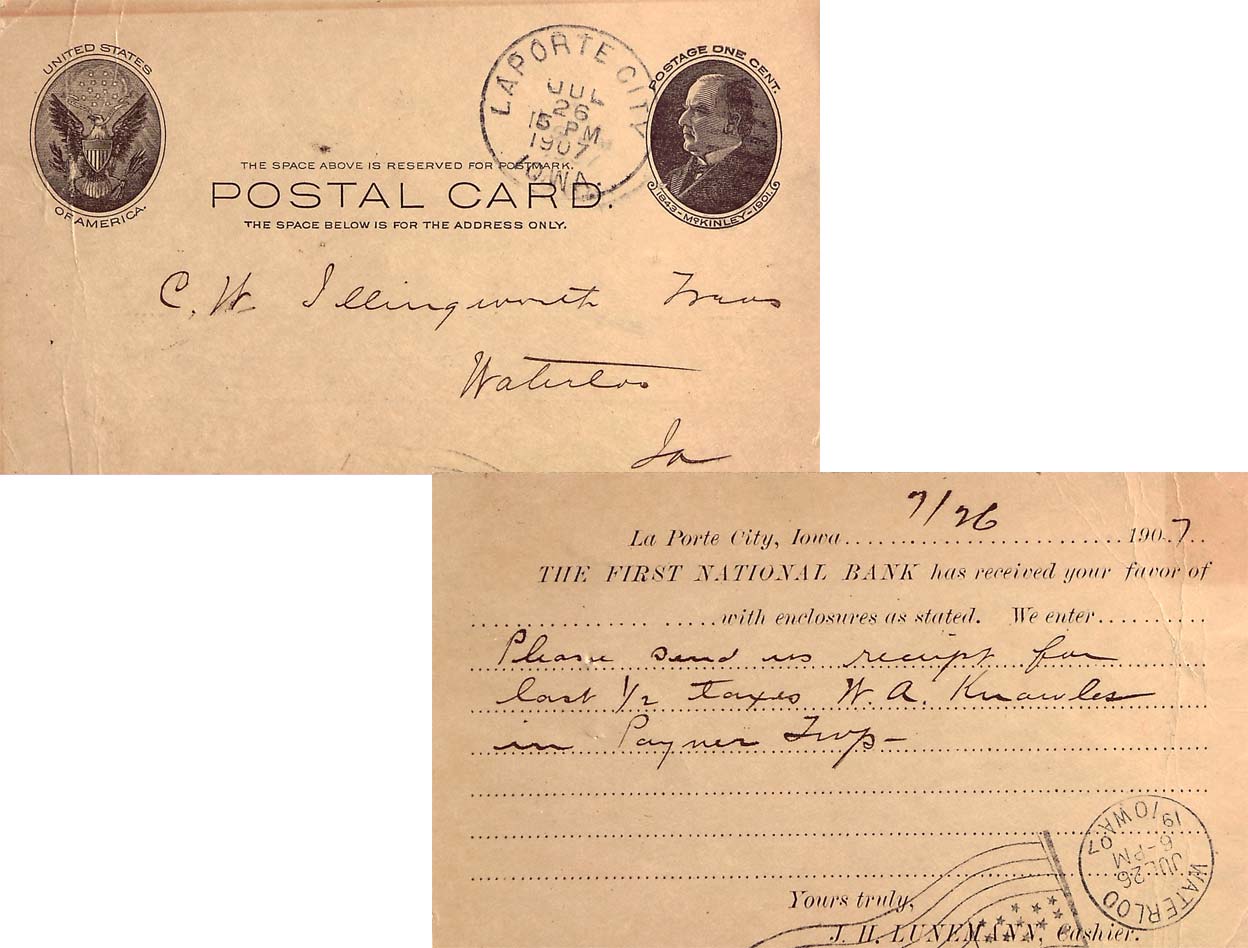 UNITED STATES
OF AMERICA.
LAPORTE CITY
JUL
26
15 PM
1907
IOWA
POSTAGE ONE CENT.
1843-McKINLEY-1901.
THE SPACE ABOVE IS RESERVED FOR POSTMARK.
POSTAL CARD.
THE SPACE BELOW IS FOR THE ADDRESS ONLY.
C. W. Illingworth Treas
Waterloo
Ia
7/26
La Porte City, Iowa........................190.7..
THE FIRST NATIONAL BANK has received your favor of
with enclosures as stated. We enter
Please send us receipt for
last 1/2 taxes W. A. Knowles
in Poyner Twp-
WATERLOO
JUL 26
6-PM
19 IOWA 07
Yours truly,
J. H. LUNEMANN, Cashier.